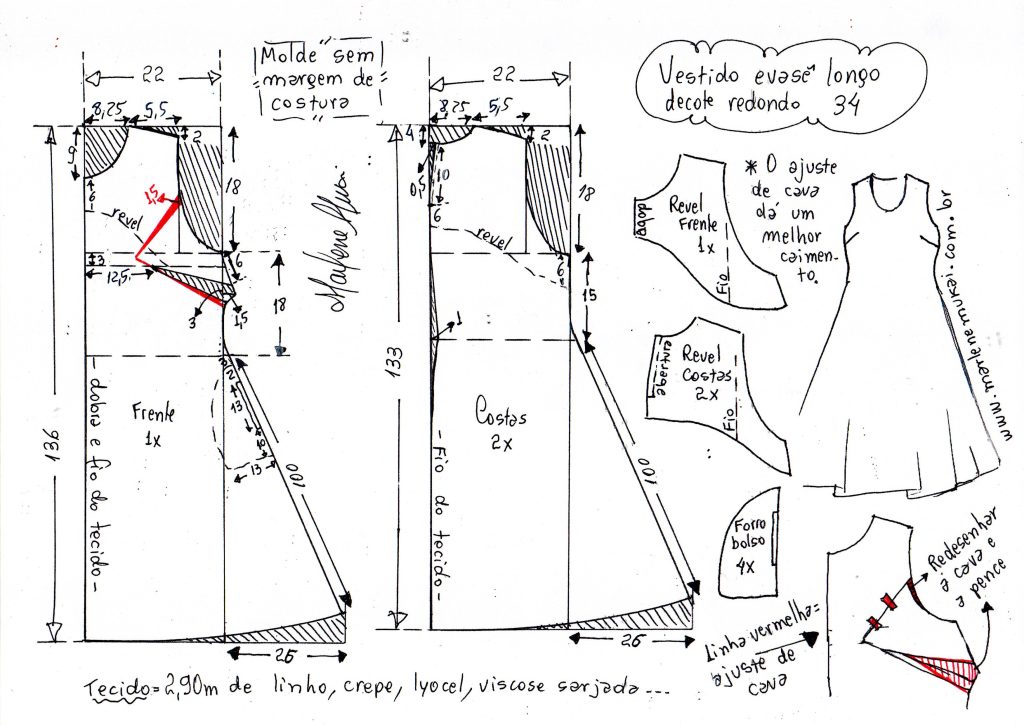 Molde sem
margem de
costura
Vestido evasê longo
decote redondo 34
22
8,25
5,5
2
9
6
revel
1,5
18
3
12,5
6
3
1,5
18
136
Frente
1x
- dobra e fio do tecido -
2
13
16
13
100
26
Marlene Mukai
22
8,25
5,5
4
2
0,5
10
6
revel
18
6
15
1
133
Costas
2x
- Fio do tecido -
100
26
dobra
Revel
Frente
1x
Fio
* O ajuste
de cava
dá um
melhor
caimen-
to.
abertura
Revel
Costas
2x
Fio
www.marlenemukai.com.br
Forro
bolso
4x
Redesenhar
a cava e
a pence
Linha vermelha=
ajuste de
cava
Tecido= 2,90m de linho, crepe, lyocel, viscose sarjada...